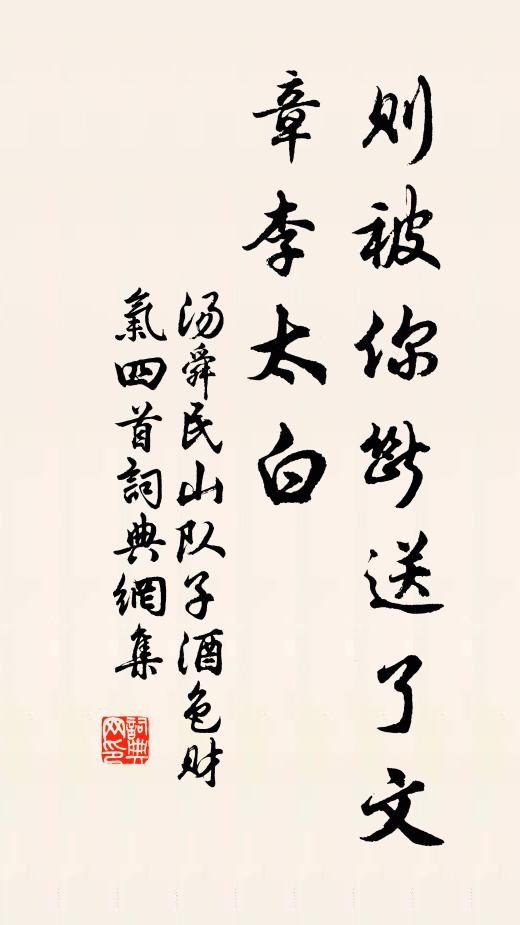 則被你斷送了文
章李太白
汤舜民山队子酒色财
氣四首詞典網集
詞典
网印